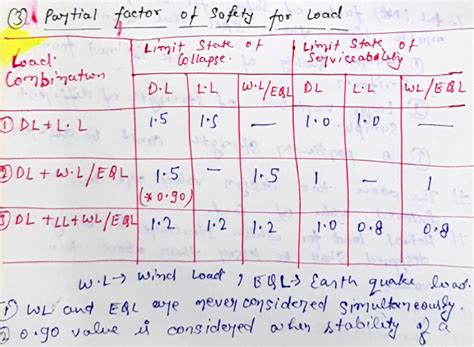 ③ Partial factor of Safety for Load
Load Combination | Limit State of Collapse. | Limit State of Serviceability
D.L | L.L | W.L/EQL | DL | L.L | WL/EQL
① DL + L.L | 1.5 | 1.5 | — | 1.0 | 1.0 | —
② DL + W.L/EQL | 1.5 (*0.90) | — | 1.5 | 1 | — | 1
③ DL + LL + WL/EQL | 1.2 | 1.2 | 1.2 | 1.0 | 0.8 | 0.8
W.L → Wind Load , EQL → Earth quake load.
① WL and EQL are never considered simultaneously.
② 0.90 value is considered when stability of a